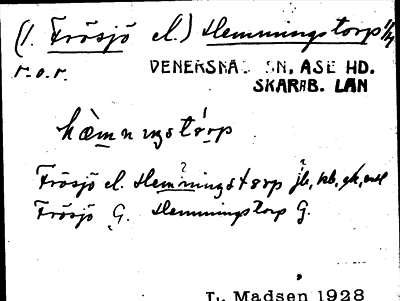 (1. Frösjö el.) Hemmingstorp 1/4
r.o.r. VENERSNÄS SN, ÅSE HD.
SKARAB. LÄN
hæ̀mnıŋstȯ́rp
Frösjö el. Hemmingstorp jb, kb,
Frösjö G. Hemmingstorp G.
L. Madsen 1928